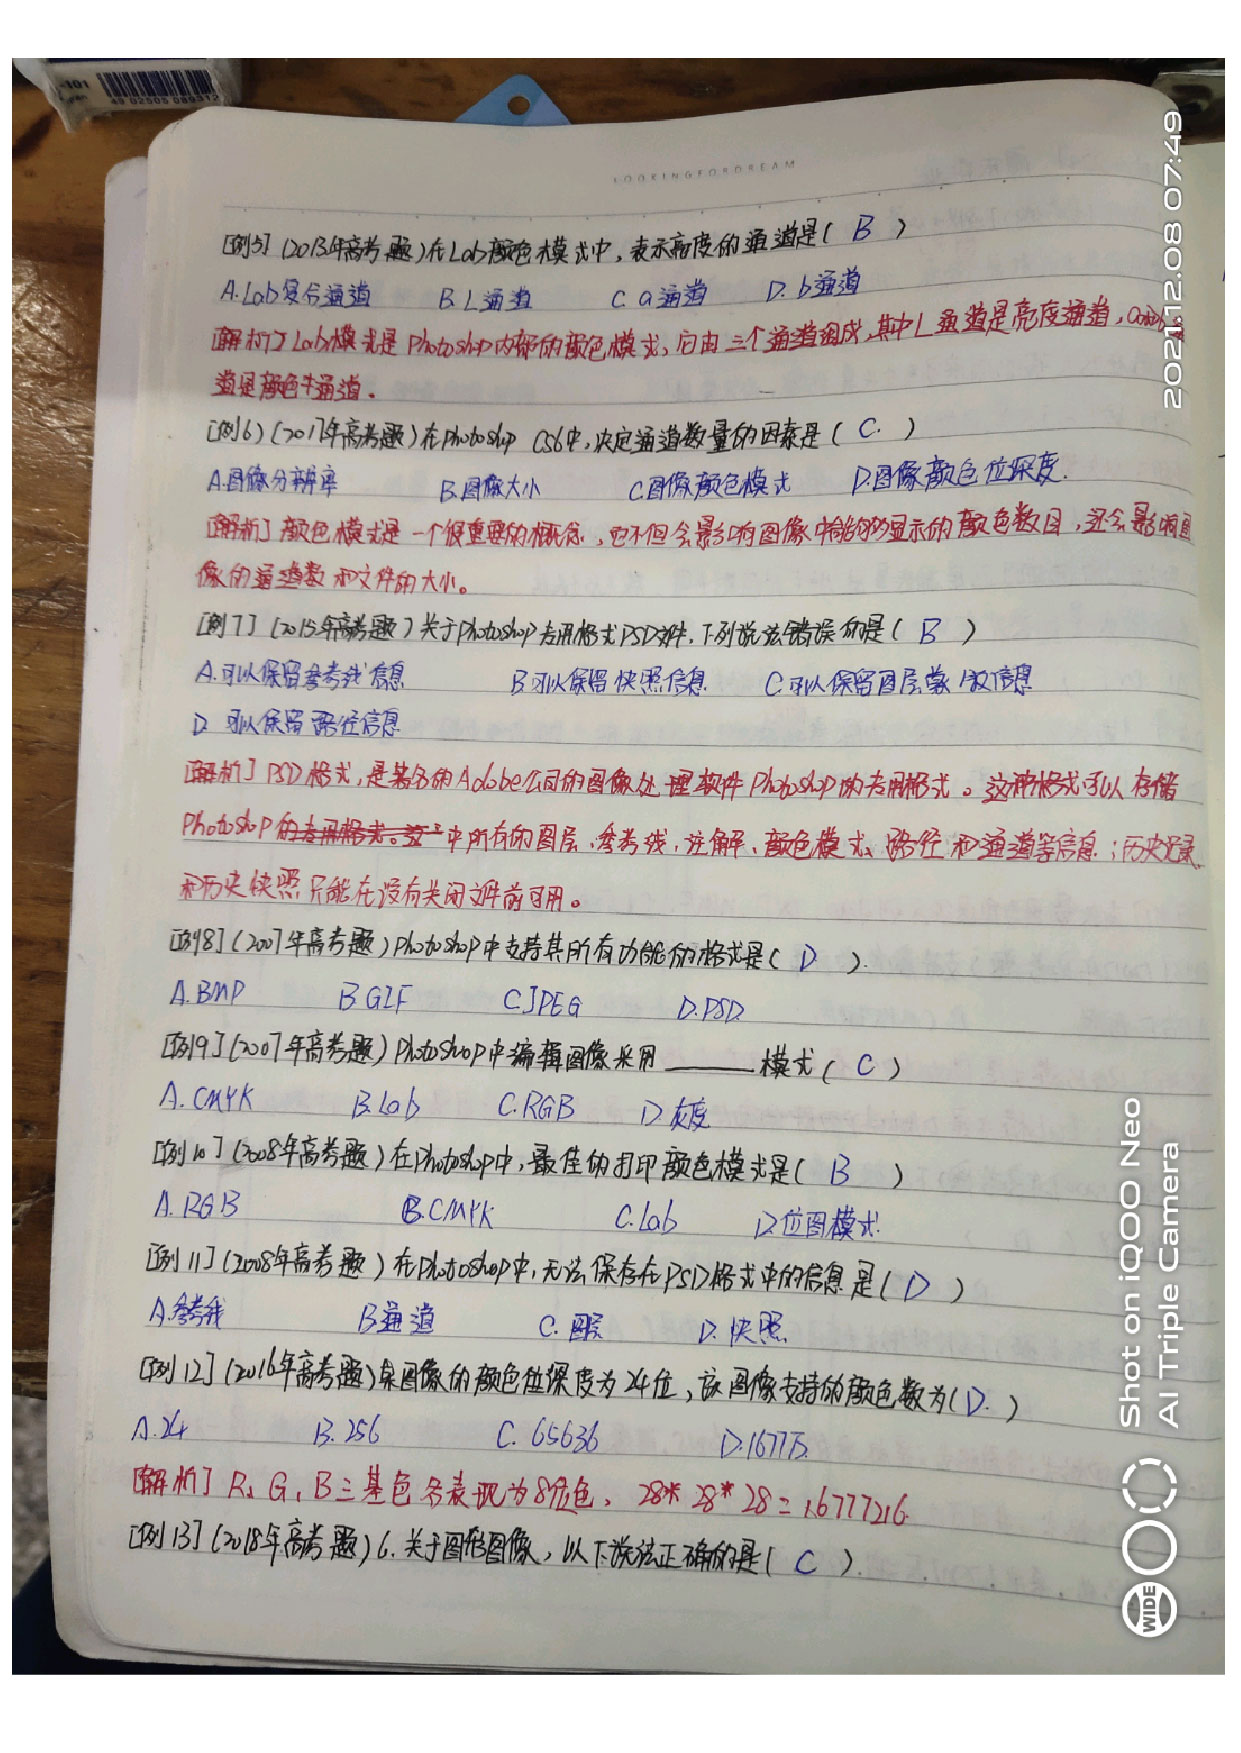 -101
49 02505 089312
LOOKINGFORDREAM
[例5](2013年高考题)在Lab颜色模式中,表示亮度的通道是( B )
A.Lab复合通道 B.L通道 C.a通道 D.b通道
[解析]Lab模式是Photoshop内部的颜色模式,它由三个通道组成,其中L通道是亮度通道,a和b通
道是颜色通道。
[例6](2017年高考题)在photoshop CS6中,决定通道数量的因素是( C. )
A.图像分辨率 B.图像大小 C图像颜色模式 D.图像颜色位深度.
[解析]颜色模式是一个很重要的概念,它不但会影响图像中能够显示的颜色数目,还会影响图
像的通道数和文件的大小。
[例7](2015年高考题)关于Photoshop专用格式PSD文件,下列说法错误的是( B )
A.可以保留参考线信息 B可以保留快照信息 C可以保留图层蒙版信息
D. 可以保留路径信息
[解析]PSD格式,是著名的Adobe公司的图像处理软件Photoshop的专用格式。这种格式可以存储
Photoshop的专用格式。这中所有的图层,参考线,注解、颜色模式、路径和通道等信息;历史记录
和历史快照只能在没有关闭文件前可用。
[例8](2007年高考题)Photoshop中支持其所有功能的格式是( D ).
A.BMP B GIF C.JPEG D.PSD.
[例9](2007年高考题)Photoshop中编辑图像采用______模式( C )
A.CMYK B.Lab C.RGB D.灰度
[例10](2008年高考题)在Photoshop中,最佳的打印颜色模式是( B )
A.RGB B.CMYK C.Lab D.位图模式.
[例11](2008年高考题)在Photoshop中,无法保存在PSD格式中的信息是( D )
A.参考线 B通道 C.图层 D.快照
[例12](2016年高考题)某图像的颜色位深度为24位,该图像支持的颜色数为(D. )
A.24 B.256 C.65636 D.1677万.
[解析]R、G、B三基色各表现为8位色,28*28*28=16777216.
[例13](2018年高考题)6.关于图形图像,以下说法正确的是( C ).
2021.12.08 07:49
Shot on iQOO Neo
AI Triple Camera
WIDE